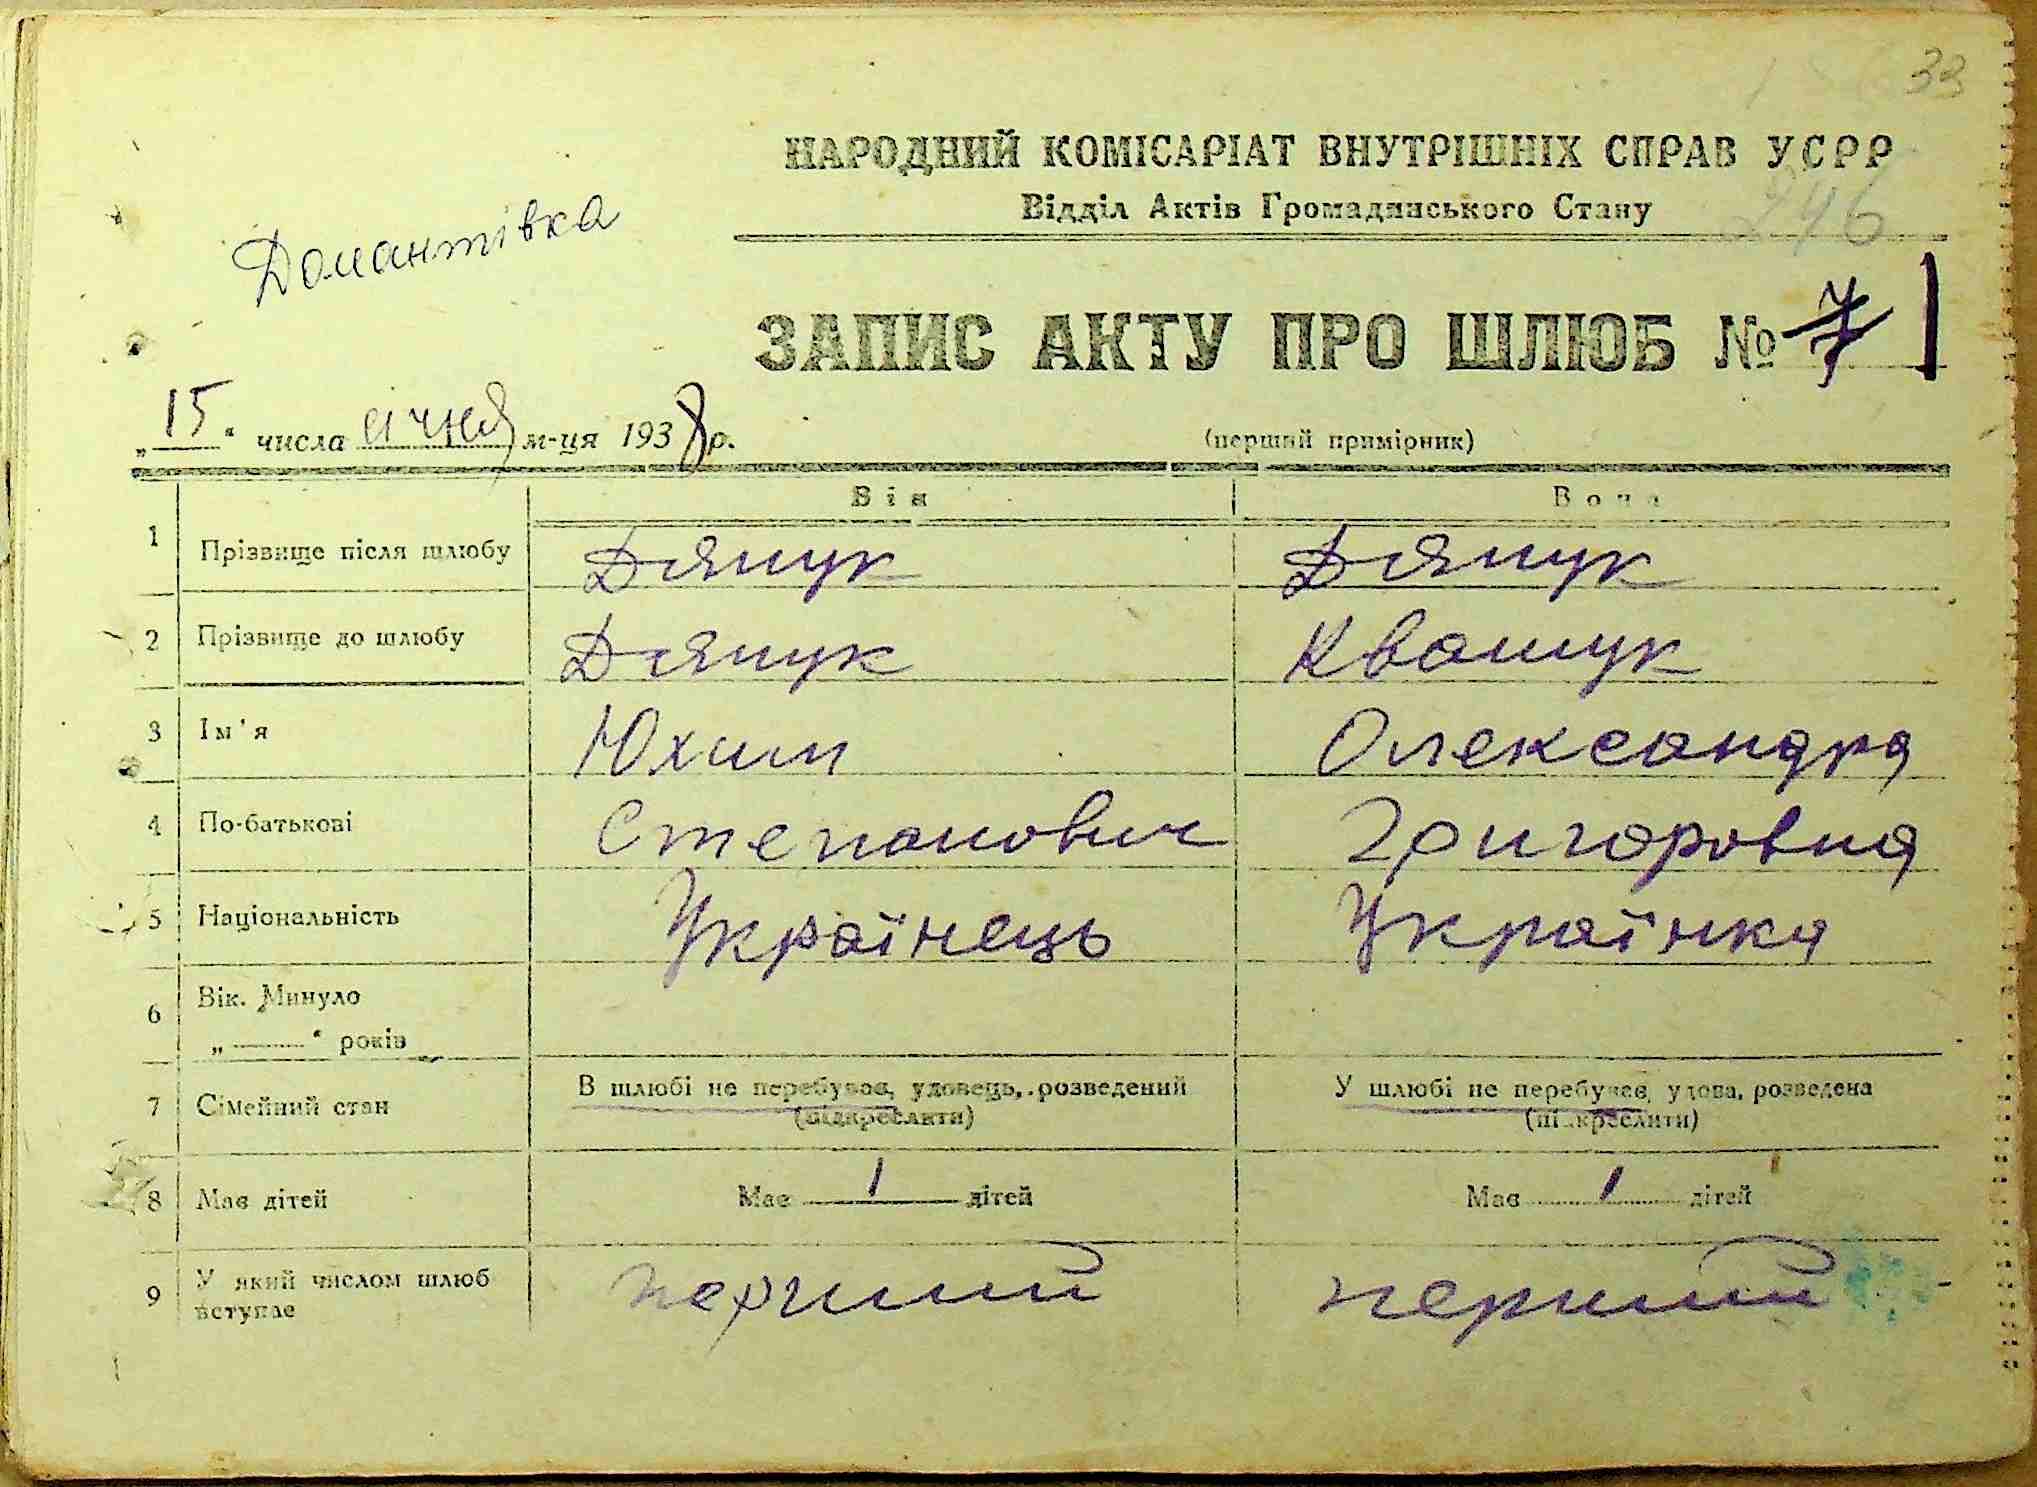 33
НАРОДНИЙ КОМІСАРІАТ ВНУТРІШНІХ СПРАВ УСРР
Відділ Актів Громадянського Стану
246
Домантівка
ЗАПИС АКТУ ПРО ШЛЮБ № 7 1
„15“ числа січня м-ця 1938 р.
(перший примірник)
Він Вона
1 Прізвище після шлюбу Дячук Дячук
2 Прізвище до шлюбу Дячук Квашук
3 Ім'я Юхим Олександра
4 По-батькові Степанович Григоровна
5 Національність Українець Українка
6 Вік. Минуло
„ “ років
7 Сімейний стан В шлюбі не перебував, удовець, розведений У шлюбі не перебуває, удова, розведена
(підкреслити) (підкреслити)
8 Має дітей Має 1 дітей Має 1 дітей
9 У який числом шлюб вступає перший перший